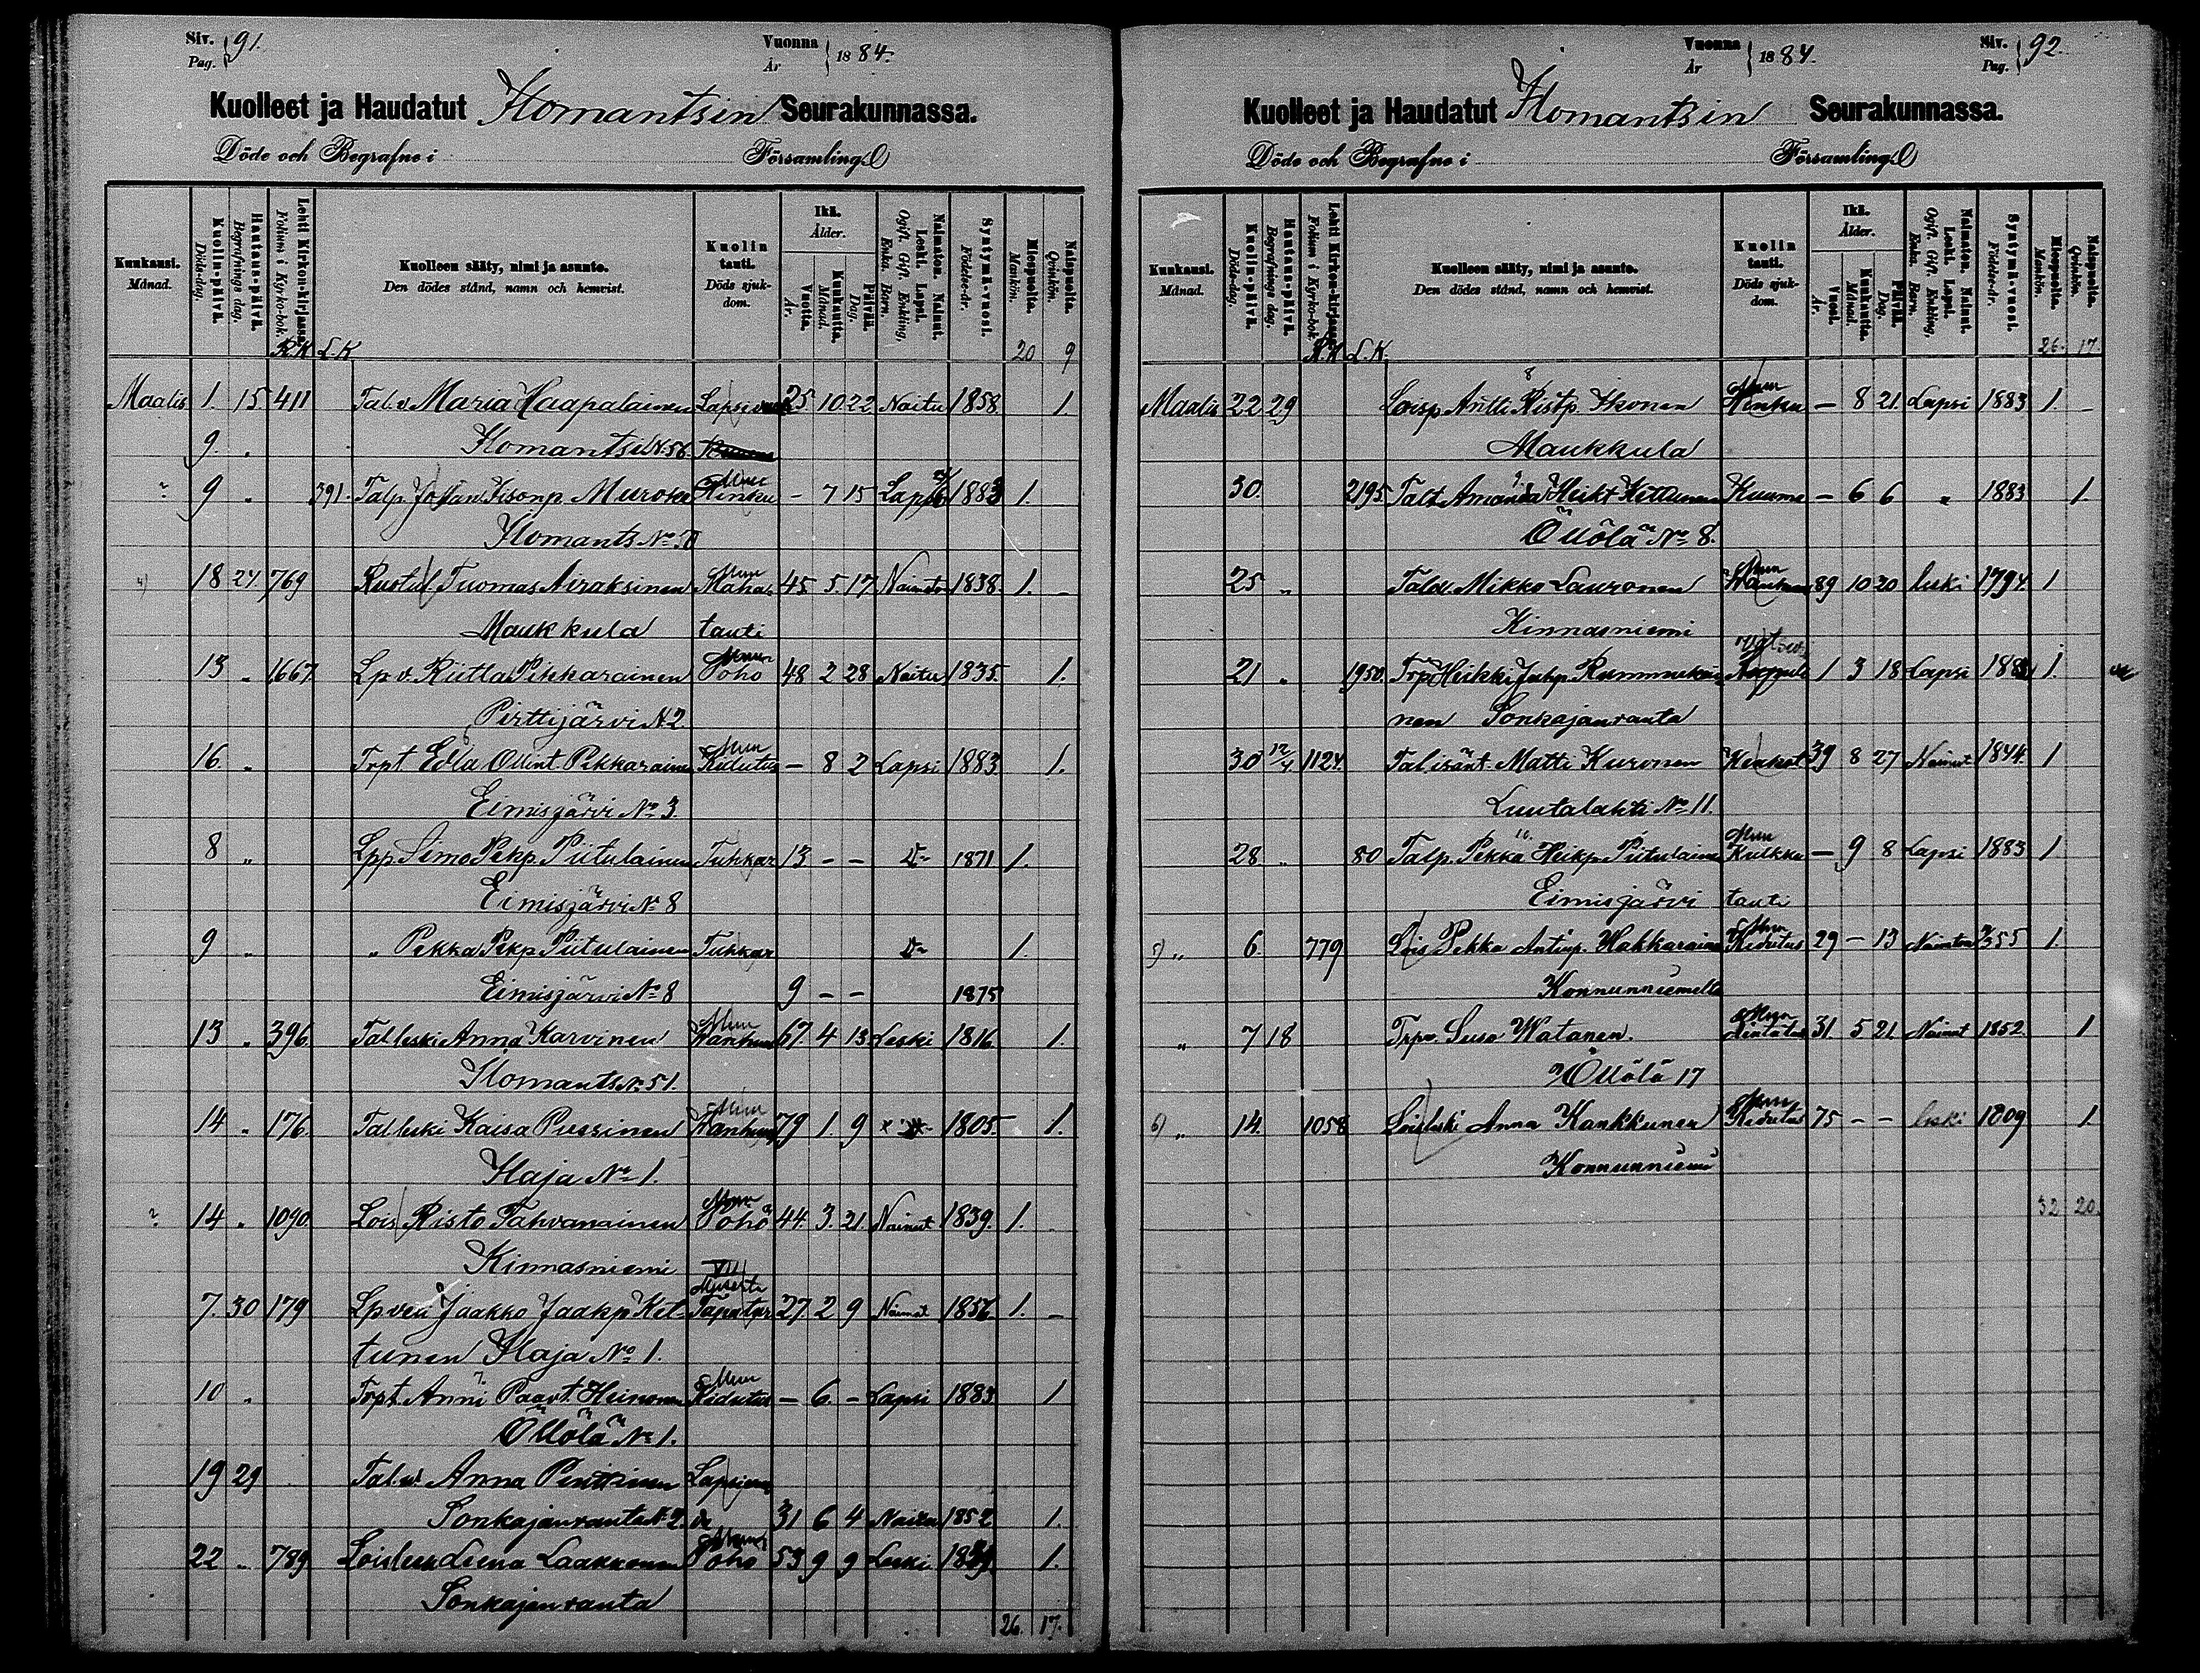 Siv. Pag. 91.
Vuonna År 1884.
Kuolleet ja Haudatut Ilomantsin Seurakunnassa.
Döde och Begrafne i Församling.
Kuukausi. Månad.
Kuolin-päivä. Döds-dag.
Hautaus-päivä. Begrafnings dag.
Lehti Kirkon-kirjassa. Folium i Kyrko-bok.
R.K. L.K
Kuolleen sääty, nimi ja asunto.
Den dödes stånd, namn och hemvist.
Kuolin tauti. Döds sjuk-dom.
Ikä. Ålder.
Vuotta. År.
Kuukautta. Månad.
Päivää. Dag.
Naimaton. Nainut. Leski. Lapsi.
Ogift. Gift. Enkling, Enka. Barn.
Syntymä-vuosi. Födelse-år.
Miespuolta. Mankön.
Naispuolta. Qvinkön.
20 9
Maalis 1. 15. 411 Tal.v. Maria Haapalainen 25 10 22 Naitu 1858 1.
9. " Ilomantsi N. 56.
? 9 " 391. Talp. Johan Muroke Hinku - 7 15 Lapsi 1883 1.
Ilomants No
4) 18 24 769 Tuomas Airaksinen Maha 45 5 17 Naimaton 1838. 1. -
Maukkula tauti
13 " 1667. Lp.v. Riitta Pikkarainen Muu Poho 48 2 28 Naitu 1835. 1.
Pirttijärvi N 2.
16. " Trpt Edla Ollint. Pikkarainen Muu Kidutus - 8 2 Lapsi 1883 1.
Eimisjärvi No 3.
8 " Lpp. Simo Pekp. Piitulainen Tuhkar 13 - - 1871 1.
Eimisjärvi No 8
9 " " Pekka Pekp. Piitulainen Tuhkar 1.
Eimisjärvi No 8 9 - - 1875
13 " 396. Tal leski Anna Karvinen Muu Wanhuus 67. 4 13 Leski 1816 1.
Ilomants No 51.
14 " 176. Tal leski Kaisa Pussinen Muu Wanhuus 79 1. 9 1805. 1.
Ilaja No 1.
? 14 " 1090. Lois Risto Tahvanainen Muu Pöhö 44. 3. 21 Nainut 1839. 1.
Kinnasniemi
7. 30 179 Lp veli Jaakko Jaakp. Ket- Tapatur 27. 2 9 Nainut 1856. 1. -
tunen Ilaja No 1.
10 " Trpt. Anni Paavt. Heinonen Muu Kidutus - 6. - Lapsi 1883 1
Öllölä No 1.
19 29 Tal.v. Anna
Sonkajanranta N 2. 31 6 4 Naitu 1852 1.
22 " 789 Loisleski Leena Laakkonen Poho 53 9 9 Leski 1.
Sonkajanranta
26. 17.
Siv. Pag. 92.
Vuonna År 1884.
Kuolleet ja Haudatut Ilomantsin Seurakunnassa.
Döde och Begrafne i Församling.
Kuukausi. Månad.
Kuolin-päivä. Döds-dag.
Hautaus-päivä. Begrafnings dag.
Lehti Kirkon-kirjassa. Folium i Kyrko-bok.
R.K. L.K.
Kuolleen sääty, nimi ja asunto.
Den dödes stånd, namn och hemvist.
Kuolin tauti. Döds sjuk-dom.
Ikä. Ålder.
Vuosi. År.
Kuukautta. Månad.
Päivää. Dag.
Naimaton. Nainut. Leski. Lapsi.
Ogift. Gift. Enkling, Enka. Barn.
Syntymä-vuosi. Födelse-år.
Miespuolta. Mankön.
Naispuolta. Qvinkön.
26. 17.
Maalis 22 29 Loisp. Antti Ristp. Ikonen Muu Hinku - 8 21. Lapsi 1883 1. -
Maukkula
30. 2195. Talt Amanda Heikt Kettunen Kuume - 6 6 " 1883 1.
Öllölä No 8.
25 " Mikko Lauronen Muu Wanhuus 89 10 20 leski 1794. 1
Kinnasniemi
21 " 1950. Trp. Heikki Juhp. 1 3 18 Lapsi 1.
nen Sonkajanranta
30 12/4 1124. Tal. isänt. Matti Kuronen 39 8 27 Nainut 1844. 1
Luutalahti No 11.
28 " 80 Talp. Pekka Heikp. Piitulainen Muu Kulkku - 9 8 Lapsi 1883 1
Eimisjärvi tauti
5) " 6. 779 Lois Pekka Antinp. Hakkarainen Muu Kidutus 29 - 13 1.
Konnunniemeltä
" 7 18 Trpv. Suso Watanen. Muu 31. 5 21. Nainut 1852. 1
Öllölä 17
6) " 14. 1058 Loisleski Anna Kankkunen Muu Kidutus 75 - - leski 1809 1.
Konnunniemi
32 20.